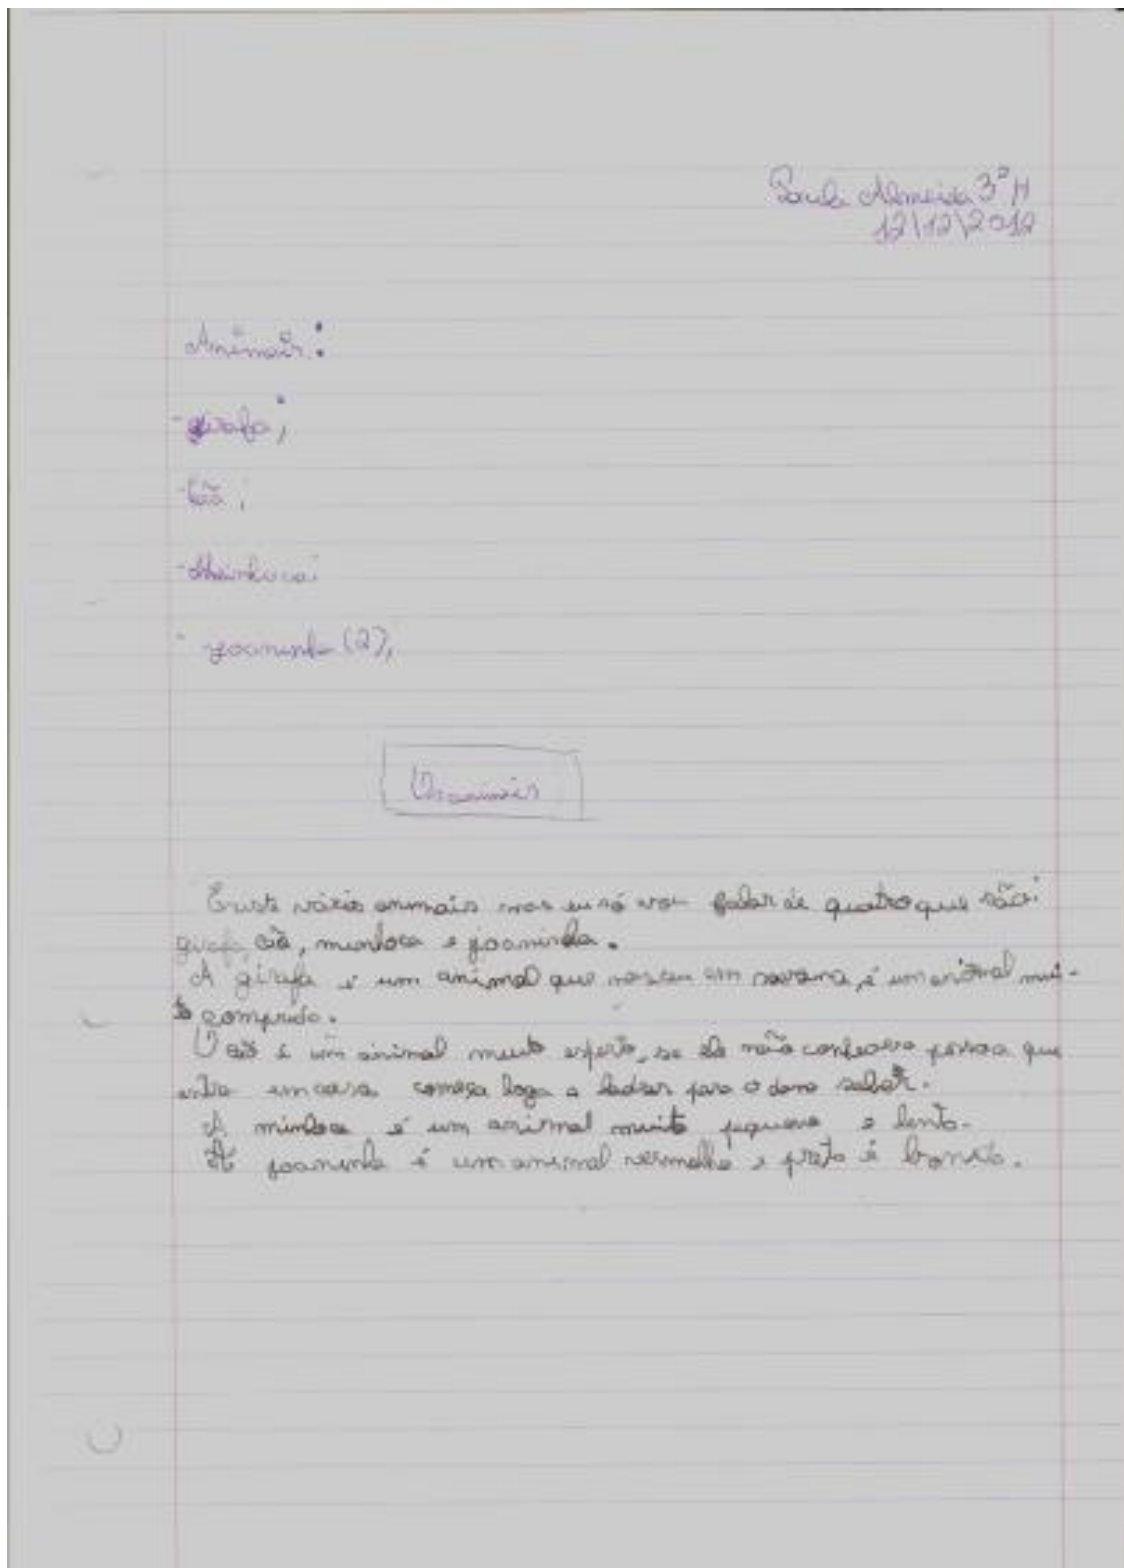 Paula Almeida 3º H
12\12\2012
Animais:
- girafa;
- cão;
- Minhoca;
- joaninha (2),
Os animais
Existe vários animais mas eu só vou falar de quatro que são:
girafa, cão, minhoca e joaninha.
A girafa é um animal que nasceu em savana, é um animal mui-
to comprido.
O cão é um animal muito esperto, se ele não conhece a pessoa que
entra em casa começa logo a ladrar para o dono saber.
A minhoca é um animal muito pequeno e lento.
A joaninha é um animal vermelho e preto é bonito.